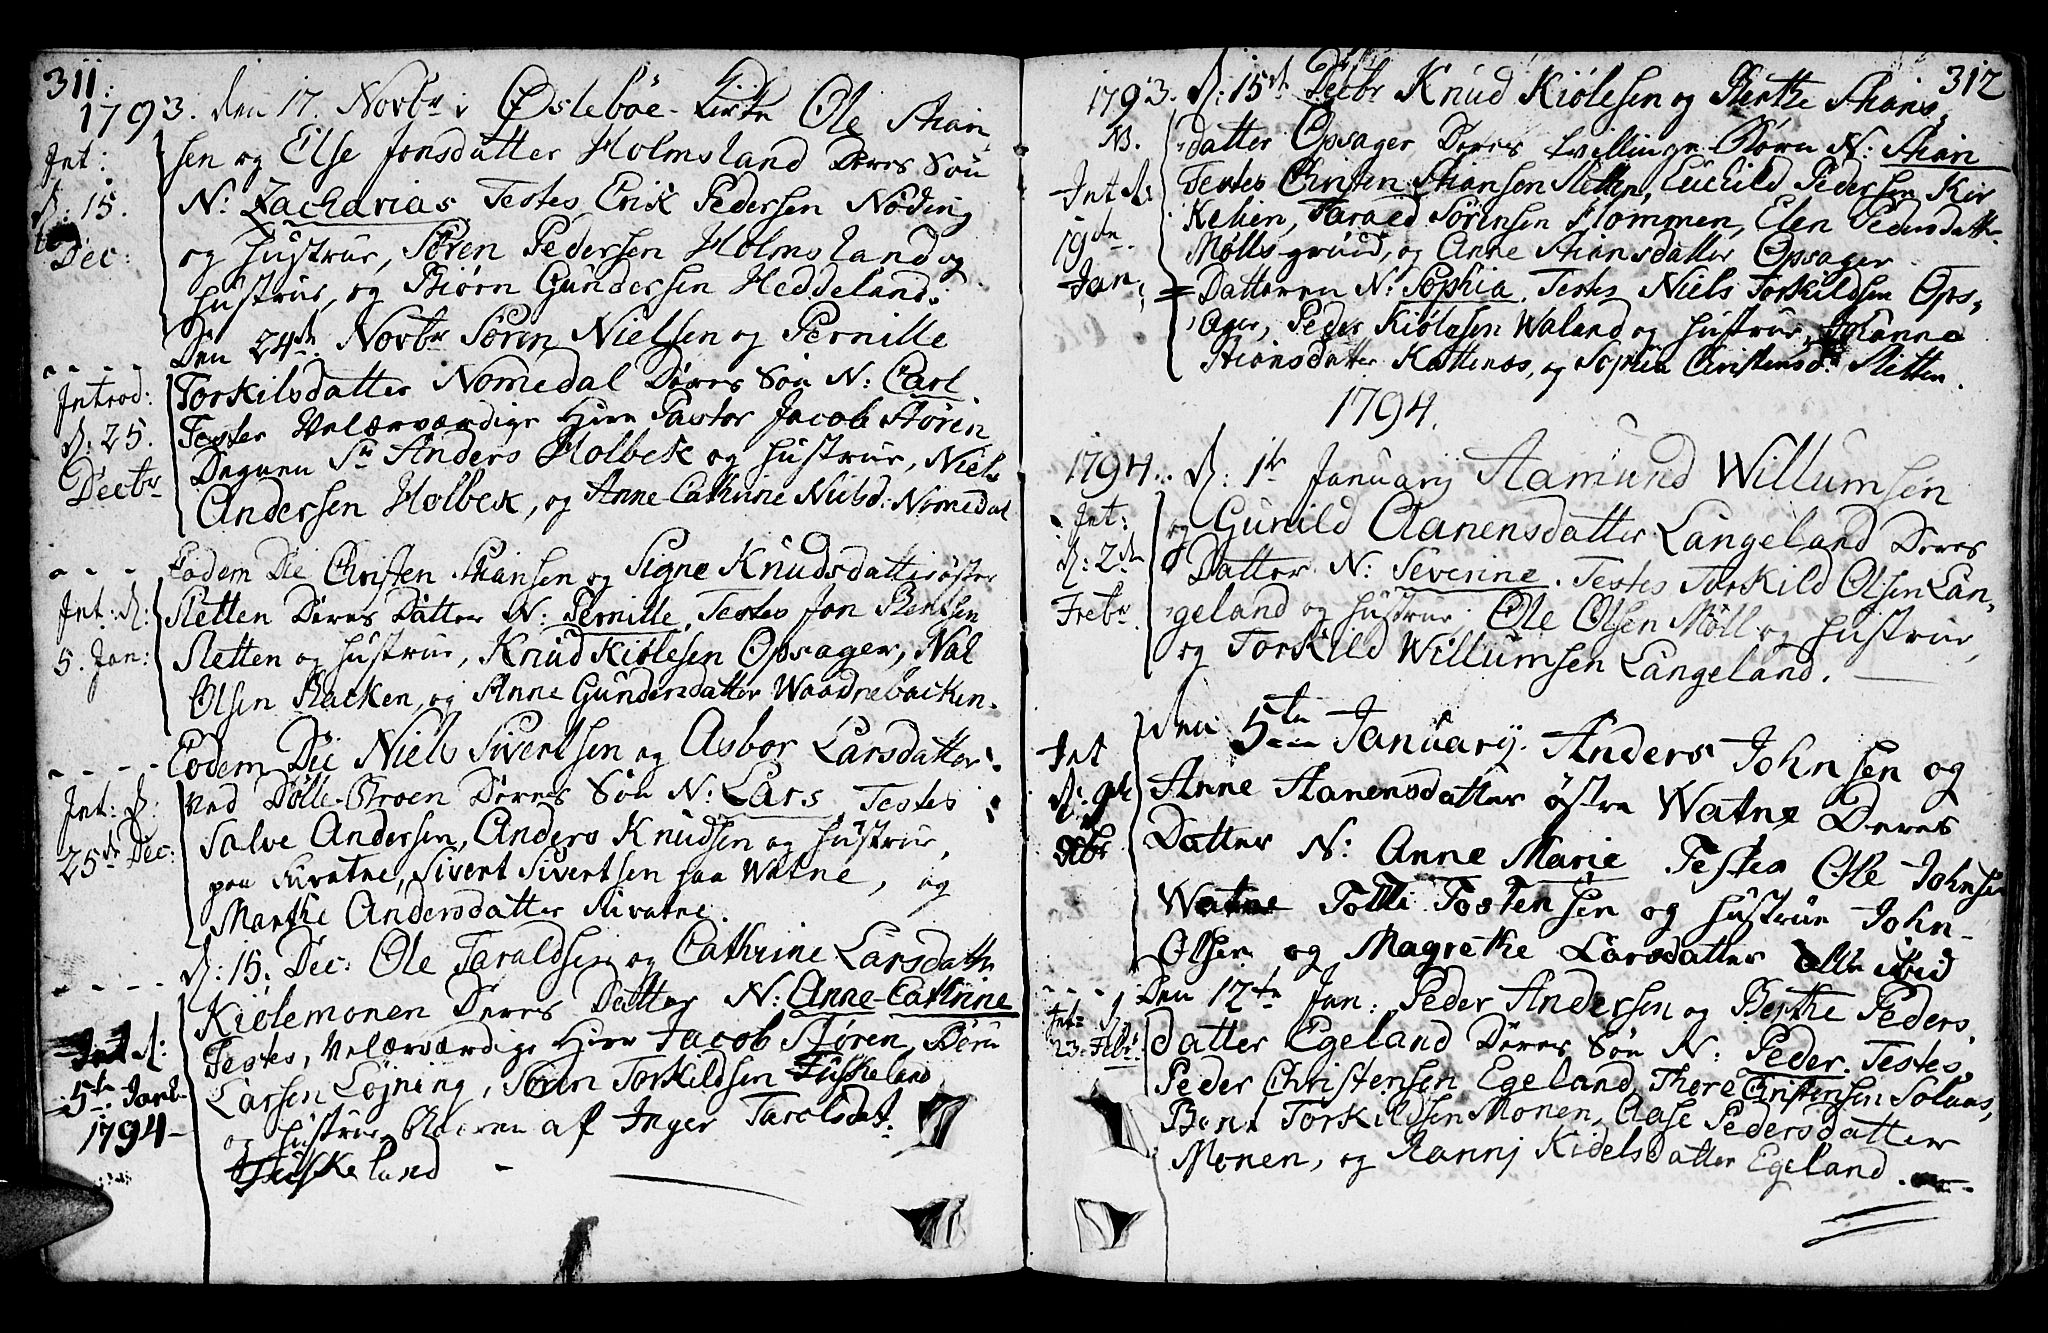 311.
1793. den 17. Novbr i Øslebøe Kirke Ole Stian
Int: sen og Else Jonsdatter Holmsland Deres Søn
d: 15. N: Zacharias Testes Erik Pedersen Nøding
Dec: og Hustrue, Søren Pedersen Holmsland og
Hustrue, og Biørn Gundersen Heddeland.
Den 24de Novbr Søren Nielsen og Pernille
Introd: Torkilsdatter Nomedal Deres Søn N: Carl
d: 25. Testes Velærværdige Herr Pastor Jacob Støren
Decbr Degnen Sr Anders Holbek og Hustrue, Niels
Andersen Holbek, og Anne Cathrine Nielsd: Nomedal
Eodem Die Christen Stiansen og Signe Knudsdatter østre
Int: d: Sletten Deres Datter N: Pernille. Testes Jon Bentsen
5. Jan: Sletten og Hustrue, Knud Kiølesen Opsager,
Olsen Backen, og Anne Gundersdatter Waadnebacken.
Eodem Die Niels Sivertsen og Asbor Larsdatter
Int: d: ved Dølle-Broen Deres Søn N: Lars Testes
25de Dec: Salve Andersen, Anders Knudsen og Hustrue,
paa Sivatne, Sivert Sivertsen paa Watne, og
Marthe Andersdatter Sivatne.
d: 15. Dec: Ole Taraldsen og Cathrine Larsdatter
Kiølemonen Deres Datter N: Anne-Cathrine
Int d: Testes, Velærværdige Herr Jacob Støren,
5te Janr Larsen Løjning, Søren Torkildsen Fuskeland
1794 og Hustrue, Baaren af Inger Taralsdat:
Fuskeland
312
1793. d: 15de Decbr Knud Kiølesen og Berthe Stians
NB. datter Opsager Deres tvillinge Børn N: Stian
Int d: Testes Christen Stiansen Sletten, Euchild Pedersen Kir
19de kelien, Tarald Sørensen Flommen, Elen Pedersdatter
Mølls grund, og Anne Stiansdatter Opsager
Jan; Datteren N: Sophia. Testes Niels Torkildsen Ops,
ager, Peder Kiølesen Waland og Hustrue, Johanne
Stiansdatter Kattenes, og Sophia Christensd: Sletten.
1794.
1794. d: 1te January Aamund Willumsen
Int: og Gunild Aanensdatter Langeland Deres
d: 2de Datter N: Severine. Testes Torkild Olsen Lan,
Febr geland og Hustrue, Ole Olsen Møll og Hustrue,
og Torkild Willumsen Langeland.
den 5te January. Anders Johnsen og
Int Anne Aanensdatter østre Watne Deres
d: 9de Datter N: Anne Marie Testes Ole Johnsen
Febr Watne Tolli Tostensen og Hustrue John
Olsen og Magrethe Larsdatter alle ibid
Den 12te Jan: Peder Andersen og Berthe Peders,
Int: datter Egeland Deres Søn N: Peder. Testes,
23. Febr: Peder Christensen Egeland, Thore Christensen Solaas,
Bent Torkildsen Monen, Aase Pedersdatter
Monen, og Rannj Kidelsdatter Egeland.